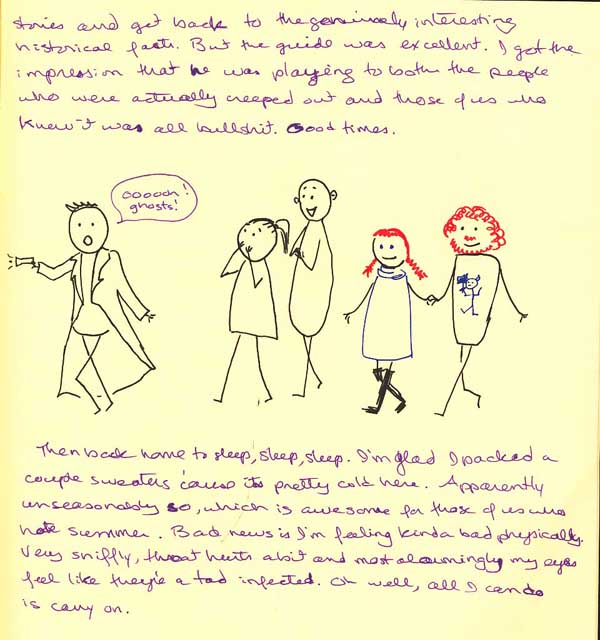 stories and get back to the genuinely interesting
historical facts. But the guide was excellent. I got the
impression that he was playing to both the people
who were actually creeped out and those of us who
knew it was all bullshit. Good times.
oooooh!
ghosts!
Then back home to sleep, sleep, sleep. I'm glad I packed a
couple sweaters 'cause its pretty cold here. Apparently
unseasonably so, which is awesome for those of us who
hate summer. Bad news is I'm feeling kinda bad physically.
Very sniffly, throat hurts a bit and most alarmingly my eyes
feel like they're a tad infected. Oh well, all I can do
is carry on.